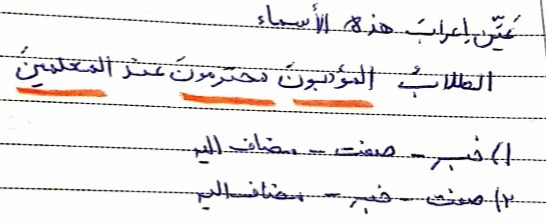 عَيِّن اِعرابَ هذه الأسماء
الطلابُ المؤدبونَ محترمونَ عند المعلمينَ
۱) خبر – صفت – مضاف الیه
۲) صفت – خبر – مضاف الیه